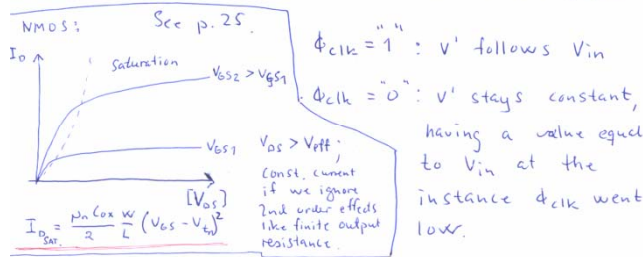 NMOS:
See p. 25.
I_D
saturation
V_GS2 > V_GS1
V_GS1
[V_DS]
I_D_SAT. = μn Cox/2 W/L (V_GS - V_tn)²
V_DS > V_eff;
Const. current
if we ignore
2nd order effects
like finite output
resistance.
ϕclk = "1" : V' follows Vin
ϕclk = "0" : V' stays constant,
having a value equal
to Vin at the
instance ϕclk went
low.